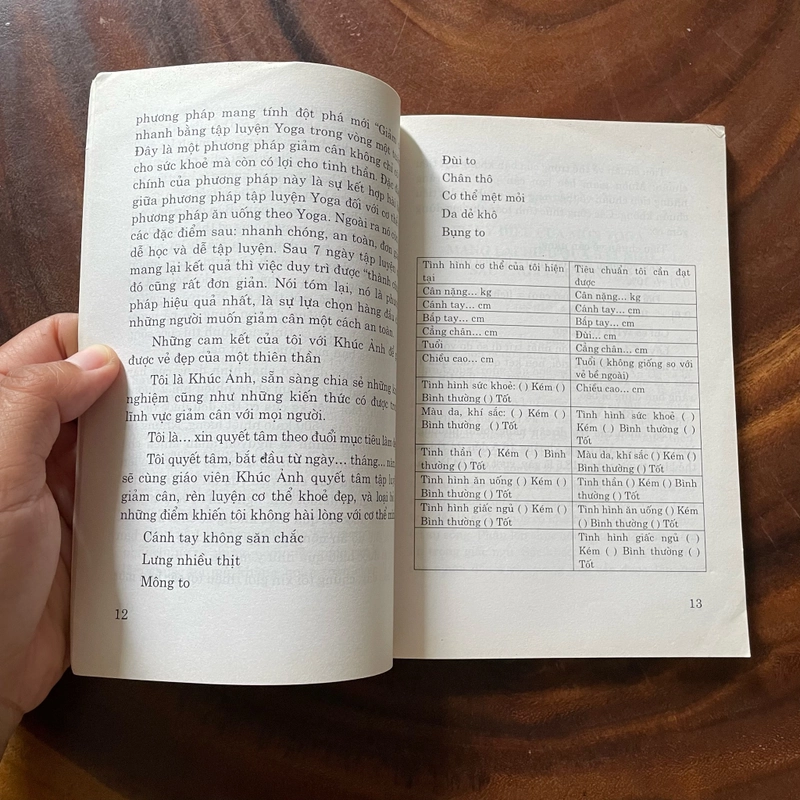 phương pháp mang tính đột phá mới "Giảm
nhanh bằng tập luyện Yoga trong vòng một
Đây là một phương pháp giảm cân không chỉ
cho sức khoẻ mà còn có lợi cho tinh thần. Đặc
chính của phương pháp này là sự kết hợp hài
giữa phương pháp tập luyện Yoga đối với cơ thể
phương pháp ăn uống theo Yoga. Ngoài ra nó còn
các đặc điểm sau: nhanh chóng, an toàn, đơn
dễ học và dễ tập luyện. Sau 7 ngày tập luyện
mang lại kết quả thì việc duy trì được "thành
đó cũng rất đơn giản. Nói tóm lại, nó là
pháp hiệu quả nhất, là sự lựa chọn hàng đầu
những người muốn giảm cân một cách an toàn.
Những cam kết của tôi với Khúc Ảnh để
được vẻ đẹp của một thiên thần
Tôi là Khúc Ảnh, sẵn sàng chia sẻ những
nghiệm cũng như những kiến thức có được
lĩnh vực giảm cân với mọi người.
Tôi là... xin quyết tâm theo đuổi mục tiêu làm
Tôi quyết tâm, bắt đầu từ ngày... tháng...
sẽ cùng giáo viên Khúc Ảnh quyết tâm tập
giảm cân, rèn luyện cơ thể khoẻ đẹp, và loại
những điểm khiến tôi không hài lòng với cơ thể
Cánh tay không săn chắc
Lưng nhiều thịt
Mông to
12
Đùi to
Chân thô
Cơ thể mệt mỏi
Da dẻ khô
Bụng to
Tình hình cơ thể của tôi hiện tại
Tiêu chuẩn tôi cần đạt được
Cân nặng... kg
Cân nặng... kg
Cánh tay... cm
Cánh tay... cm
Bắp tay... cm
Bắp tay... cm
Cẳng chân... cm
Đùi... cm
Tuổi
Cẳng chân... cm
Chiều cao... cm
Tuổi ( không giống so với vẻ bề ngoài)
Tình hình sức khoẻ: ( ) Kém ( ) Bình thường ( ) Tốt
Chiều cao... cm
Màu da, khí sắc: ( ) Kém ( ) Bình thường ( ) Tốt
Tình hình sức khoẻ ( ) Kém ( ) Bình thường ( ) Tốt
Tinh thần ( ) Kém ( ) Bình thường ( ) Tốt
Màu da, khí sắc ( ) Kém ( ) Bình thường ( ) Tốt
Tình hình ăn uống ( ) Kém ( ) Bình thường ( ) Tốt
Tinh thần ( ) Kém ( ) Bình thường ( ) Tốt
Tình hình giấc ngủ ( ) Kém ( ) Bình thường ( ) Tốt
Tình hình ăn uống ( ) Kém ( ) Bình thường ( ) Tốt
Tình hình giấc ngủ ( ) Kém ( ) Bình thường ( ) Tốt
13